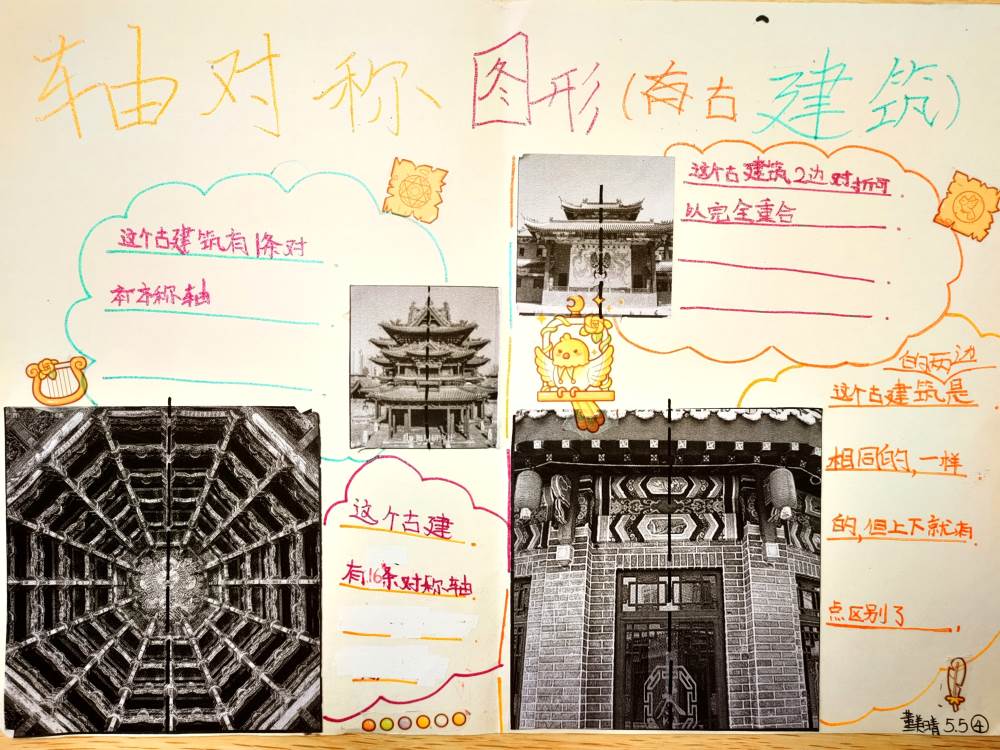 轴对称图形(有古建筑)
这个古建筑有1条对
称轴
这个古建筑2边对折可
以完全重合
这个古建
有16条对称轴
的两边
这个古建筑是
相同的,一样
的,但上下就有
点区别了
5.5④